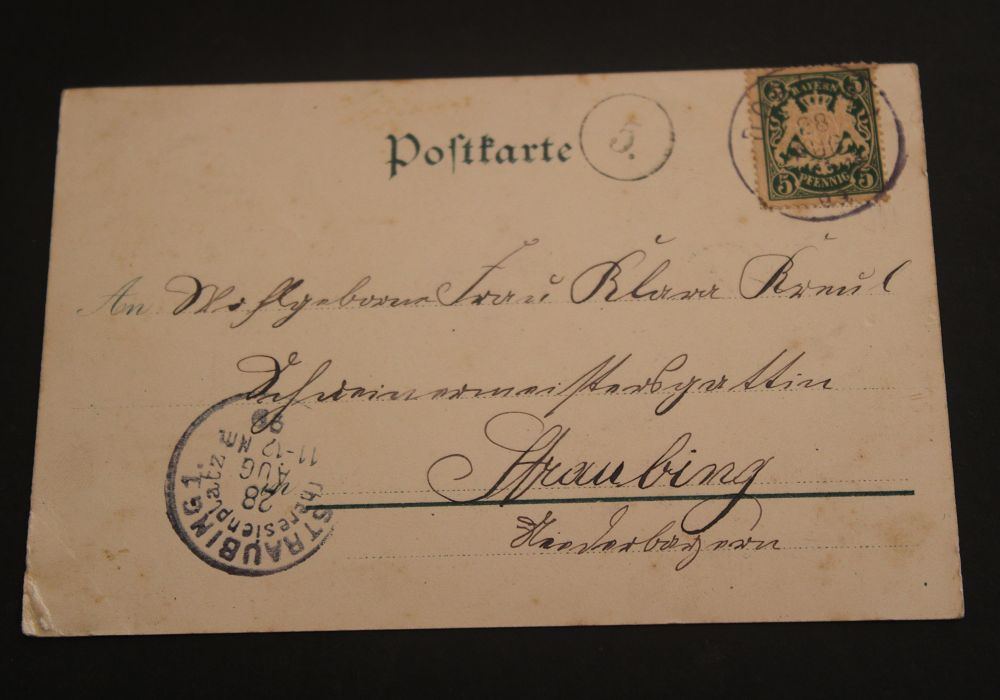 Postkarte
5.
BAYERN
5 5
5 PFENNIG 5
An Wohlgeborne Frau Klara Kreul
Schreinermeistersgattin
Straubing
Niederbayern
STRAUBING 1.
Theresienplatz
28
AUG
11-12 Nm
98